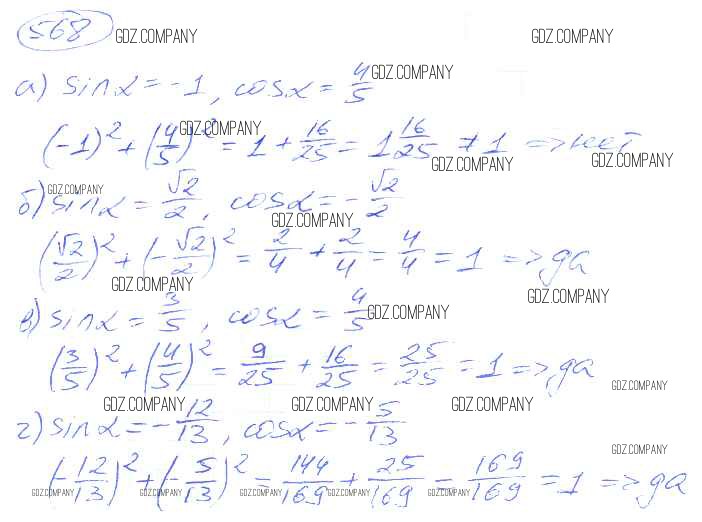 568 GDZ.COMPANY GDZ.COMPANY
а) sinα = -1, cosα = 4/5 GDZ.COMPANY
(-1)² + (4/5)² = 1 + 16/25 = 1 16/25 ≠ 1 => нет GDZ.COMPANY GDZ.COMPANY GDZ.COMPANY
б) sinα = √2/2, cosα = -√2/2 GDZ.COMPANY GDZ.COMPANY
(√2/2)² + (-√2/2)² = 2/4 + 2/4 = 4/4 = 1 => да
GDZ.COMPANY GDZ.COMPANY
в) sinα = 3/5, cosα = 4/5 GDZ.COMPANY
(3/5)² + (4/5)² = 9/25 + 16/25 = 25/25 = 1 => да GDZ.COMPANY
GDZ.COMPANY GDZ.COMPANY GDZ.COMPANY
г) sinα = -12/13, cosα = -5/13 GDZ.COMPANY
(-12/13)² + (-5/13)² = 144/169 + 25/169 = 169/169 = 1 => да
GDZ.COMPANY GDZ.COMPANY GDZ.COMPANY GDZ.COMPANY GDZ.COMPANY